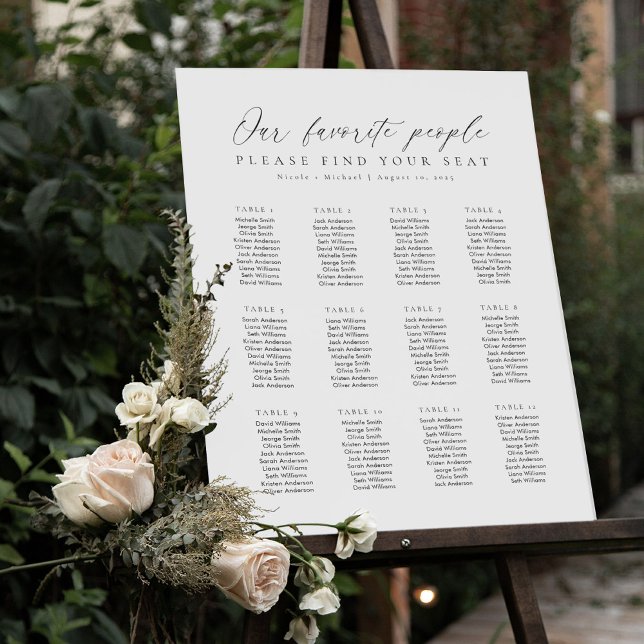 Our favorite people
PLEASE FIND YOUR SEAT
Nicole + Michael | August 10, 2025
TABLE 1
Michelle Smith
Jeorge Smith
Olivia Smith
Kristen Anderson
Oliver Anderson
Jack Anderson
Sarah Anderson
Liana Williams
Seth Williams
David Williams
TABLE 2
Jack Anderson
Sarah Anderson
Liana Williams
Seth Williams
David Williams
Michelle Smith
Jeorge Smith
Olivia Smith
Kristen Anderson
Oliver Anderson
TABLE 3
David Williams
Michelle Smith
Jeorge Smith
Olivia Smith
Kristen Anderson
Oliver Anderson
Jack Anderson
Sarah Anderson
Liana Williams
Seth Williams
TABLE 4
Jack Anderson
Sarah Anderson
Liana Williams
Seth Williams
Kristen Anderson
Oliver Anderson
David Williams
Michelle Smith
Jeorge Smith
Olivia Smith
TABLE 5
Sarah Anderson
Liana Williams
Seth Williams
Kristen Anderson
Oliver Anderson
David Williams
Michelle Smith
Jeorge Smith
Olivia Smith
Jack Anderson
TABLE 6
Liana Williams
Seth Williams
David Williams
Michelle Smith
Jeorge Smith
Olivia Smith
Jack Anderson
Sarah Anderson
Kristen Anderson
Oliver Anderson
TABLE 7
Jack Anderson
Sarah Anderson
Liana Williams
Seth Williams
David Williams
Michelle Smith
Jeorge Smith
Olivia Smith
Kristen Anderson
Oliver Anderson
TABLE 8
Michelle Smith
Jeorge Smith
Olivia Smith
Kristen Anderson
Oliver Anderson
Jack Anderson
Sarah Anderson
Liana Williams
Seth Williams
David Williams
TABLE 9
David Williams
Michelle Smith
Jeorge Smith
Olivia Smith
Jack Anderson
Sarah Anderson
Liana Williams
Seth Williams
Kristen Anderson
Oliver Anderson
TABLE 10
Michelle Smith
Jeorge Smith
Olivia Smith
Kristen Anderson
Oliver Anderson
Jack Anderson
Sarah Anderson
Liana Williams
Seth Williams
David Williams
TABLE 11
Sarah Anderson
Liana Williams
Seth Williams
David Williams
Michelle Smith
Kristen Anderson
Jeorge Smith
Olivia Smith
Oliver Anderson
Jack Anderson
TABLE 12
Kristen Anderson
Oliver Anderson
David Williams
Michelle Smith
Jeorge Smith
Olivia Smith
Jack Anderson
Sarah Anderson
Liana Williams
Seth Williams